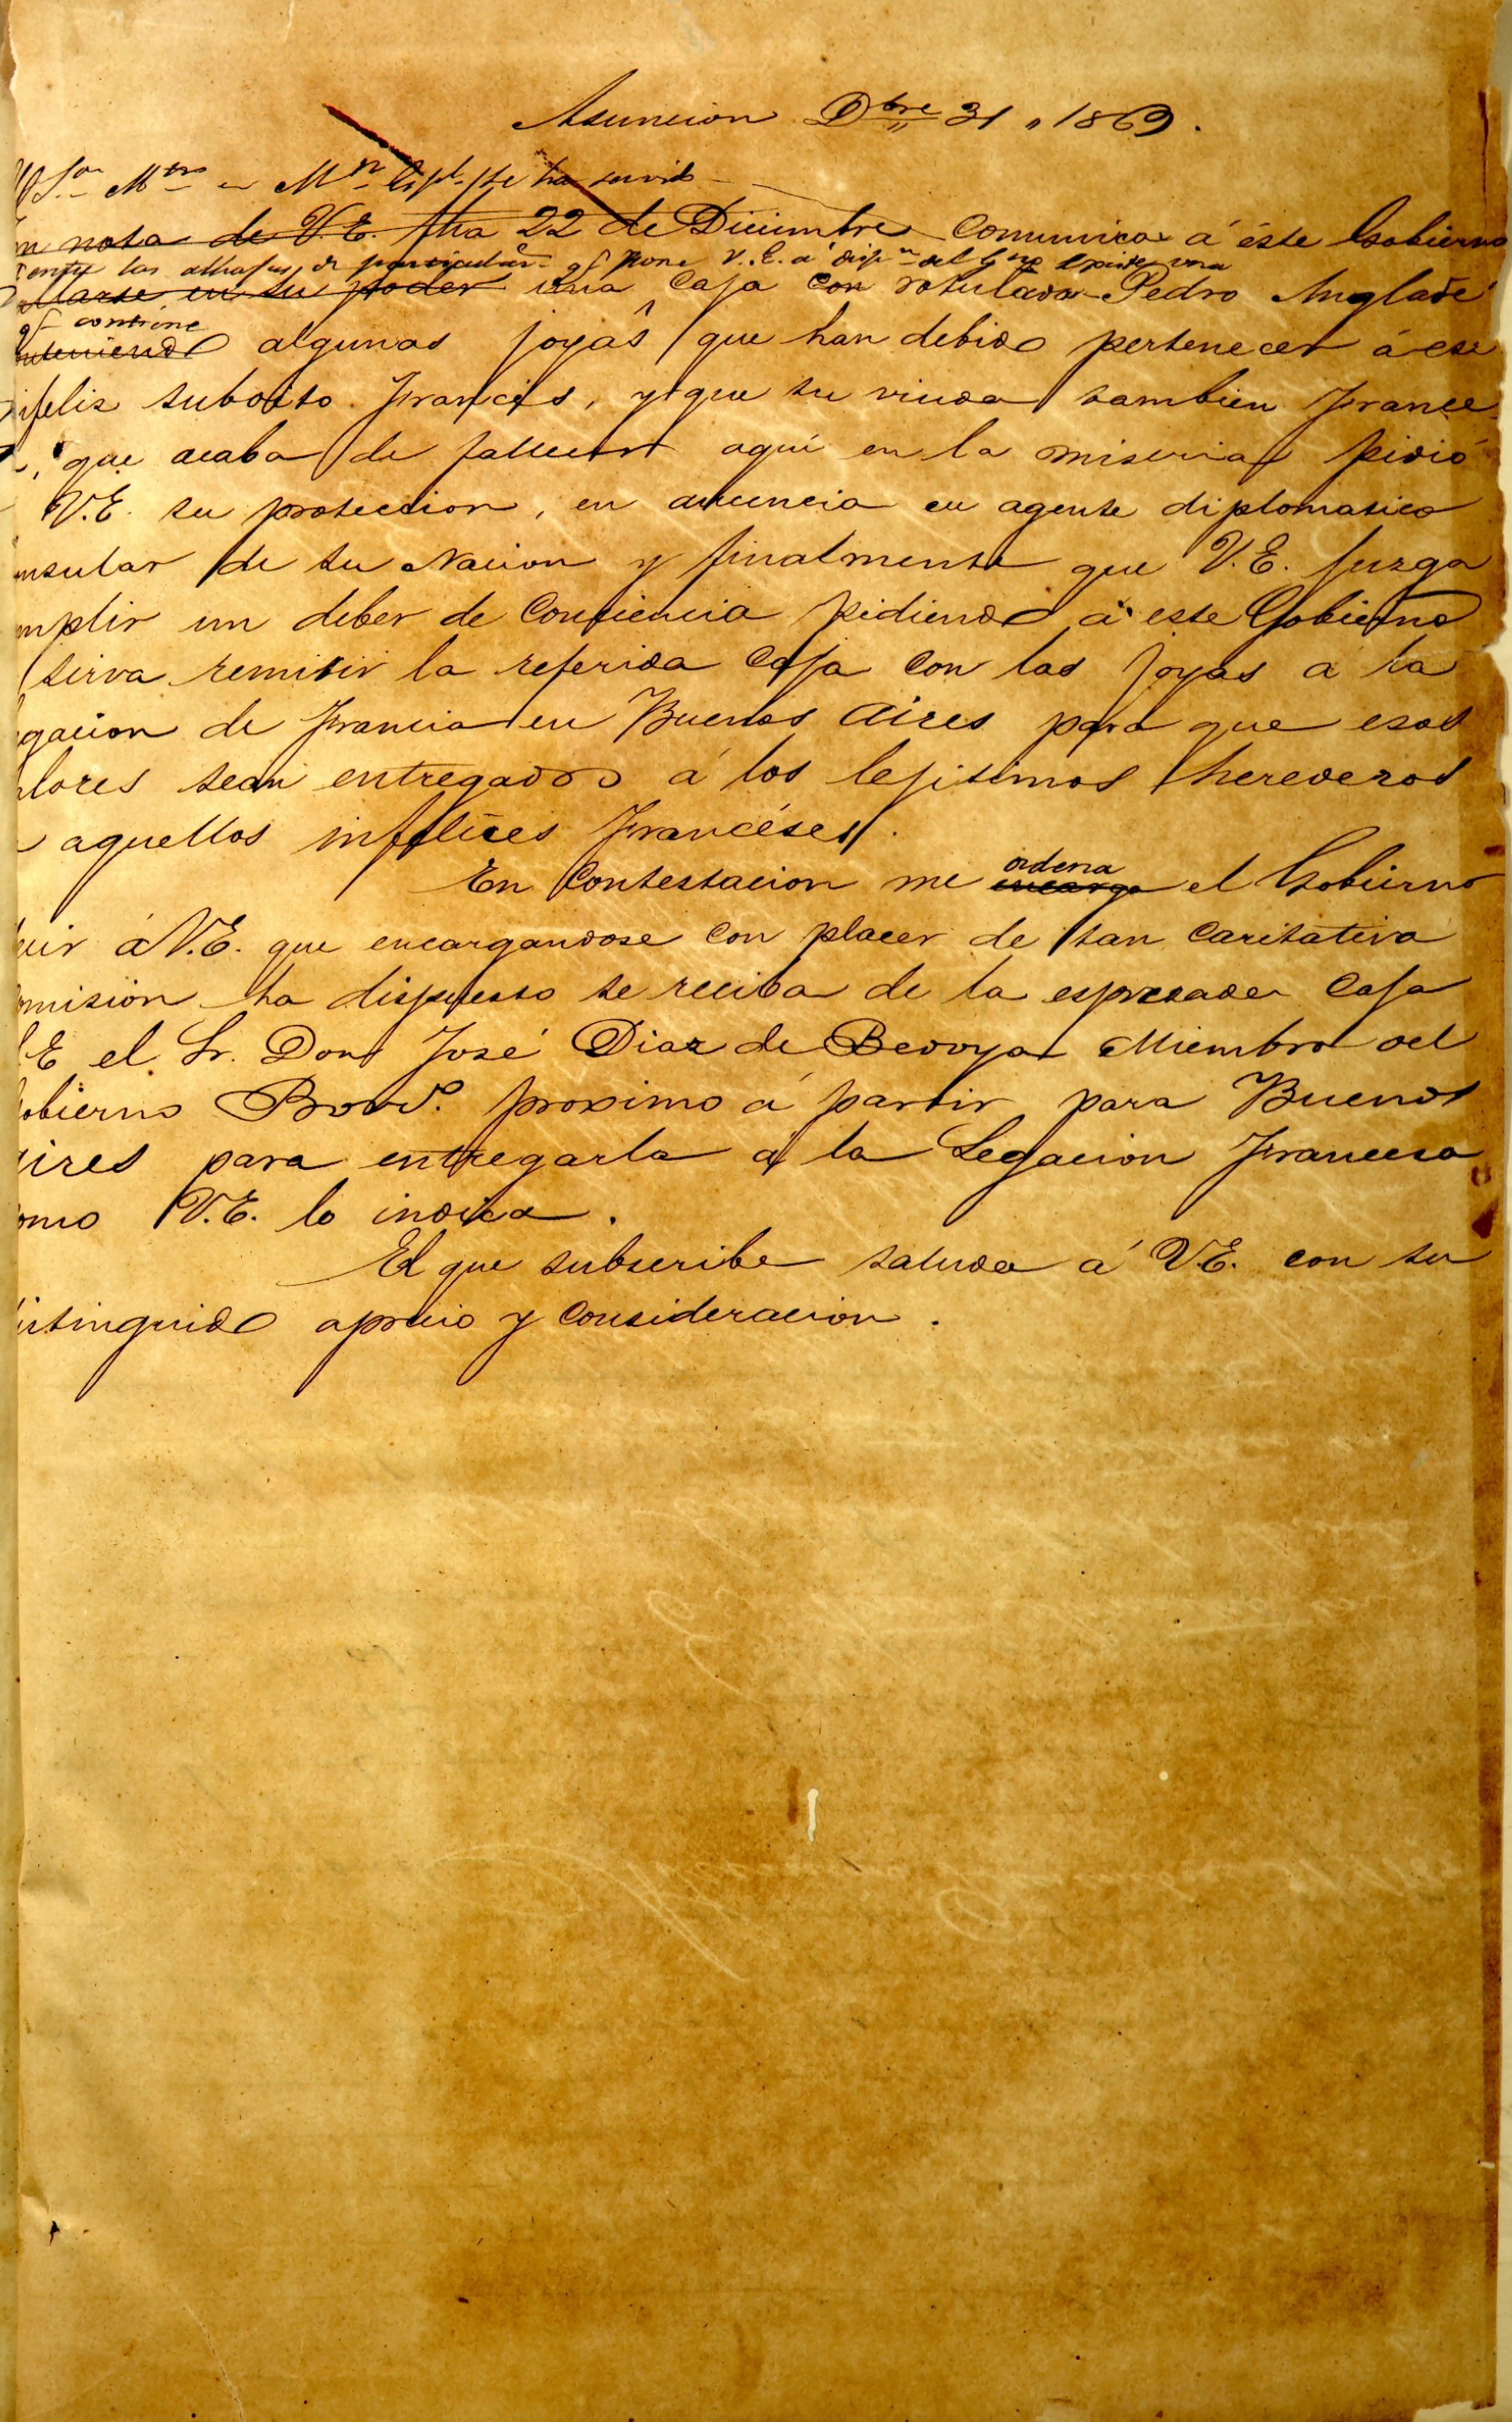 Asuncion Dbre 31 " 1869.
Sor Mtro en Mn Espl. se ha servido
nota de V.E. fha 22 de Diciembre comunica á éste Gobierno
entre las alhajas de particulares qe pone V.E. á dispn del Gno existe una
llarse en su poder una caja con rotulada Pedro Anglade
qe contiene
nteniendo algunas joyas que han debido pertenecer á ese
nfeliz subdito Francés, y que su viuda tambien France
, que acaba de fallecer aquí en la miseria pidió
V.E. su proteccion, en auuencia en agente diplomatico
nsular de su Nacion y finalmente que V.E. juzga
mplir un deber de conciencia pidiendo á este Gobierno
sirva remitir la referida caja con las joyas a la
gacion de Francia en Buenos Aires para que esos
lores sean entregados á los lejitimos herederos
aquellos infelices Francéses.
ordena
En contestacion me encarga el Gobierno
cir á V.E. que encargandose con placer de tan caritativa
omision ha dispuesto se reciba de la espresada caja
E el Sr. Don José Diaz de Bedoya Miembro del
obierno Provo. proximo á partir para Buenos
ires para entregarla a la Legacion Francesa
omo V.E. lo indica.
El que subscribe saluda á V.E. con su
istinguido aprecio y consideracion.